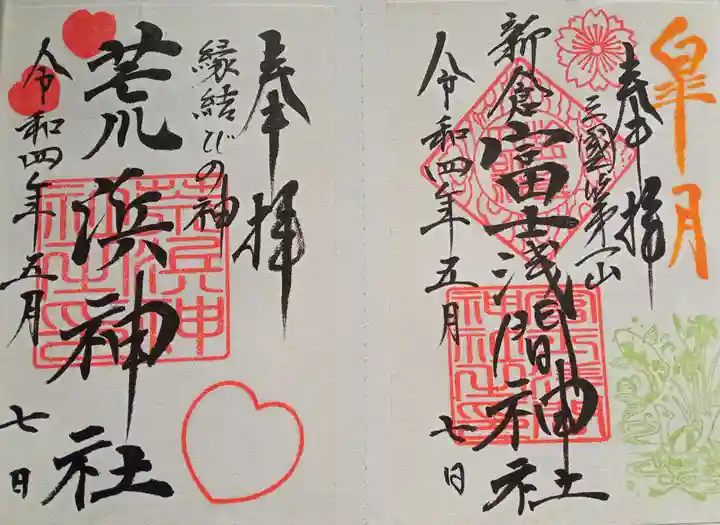 皐月
奉拝
三國第一山
新倉富士浅間神社
令和四年五月
七日
奉拝
縁結びの神
荒浜神社
令和四年五月
七日